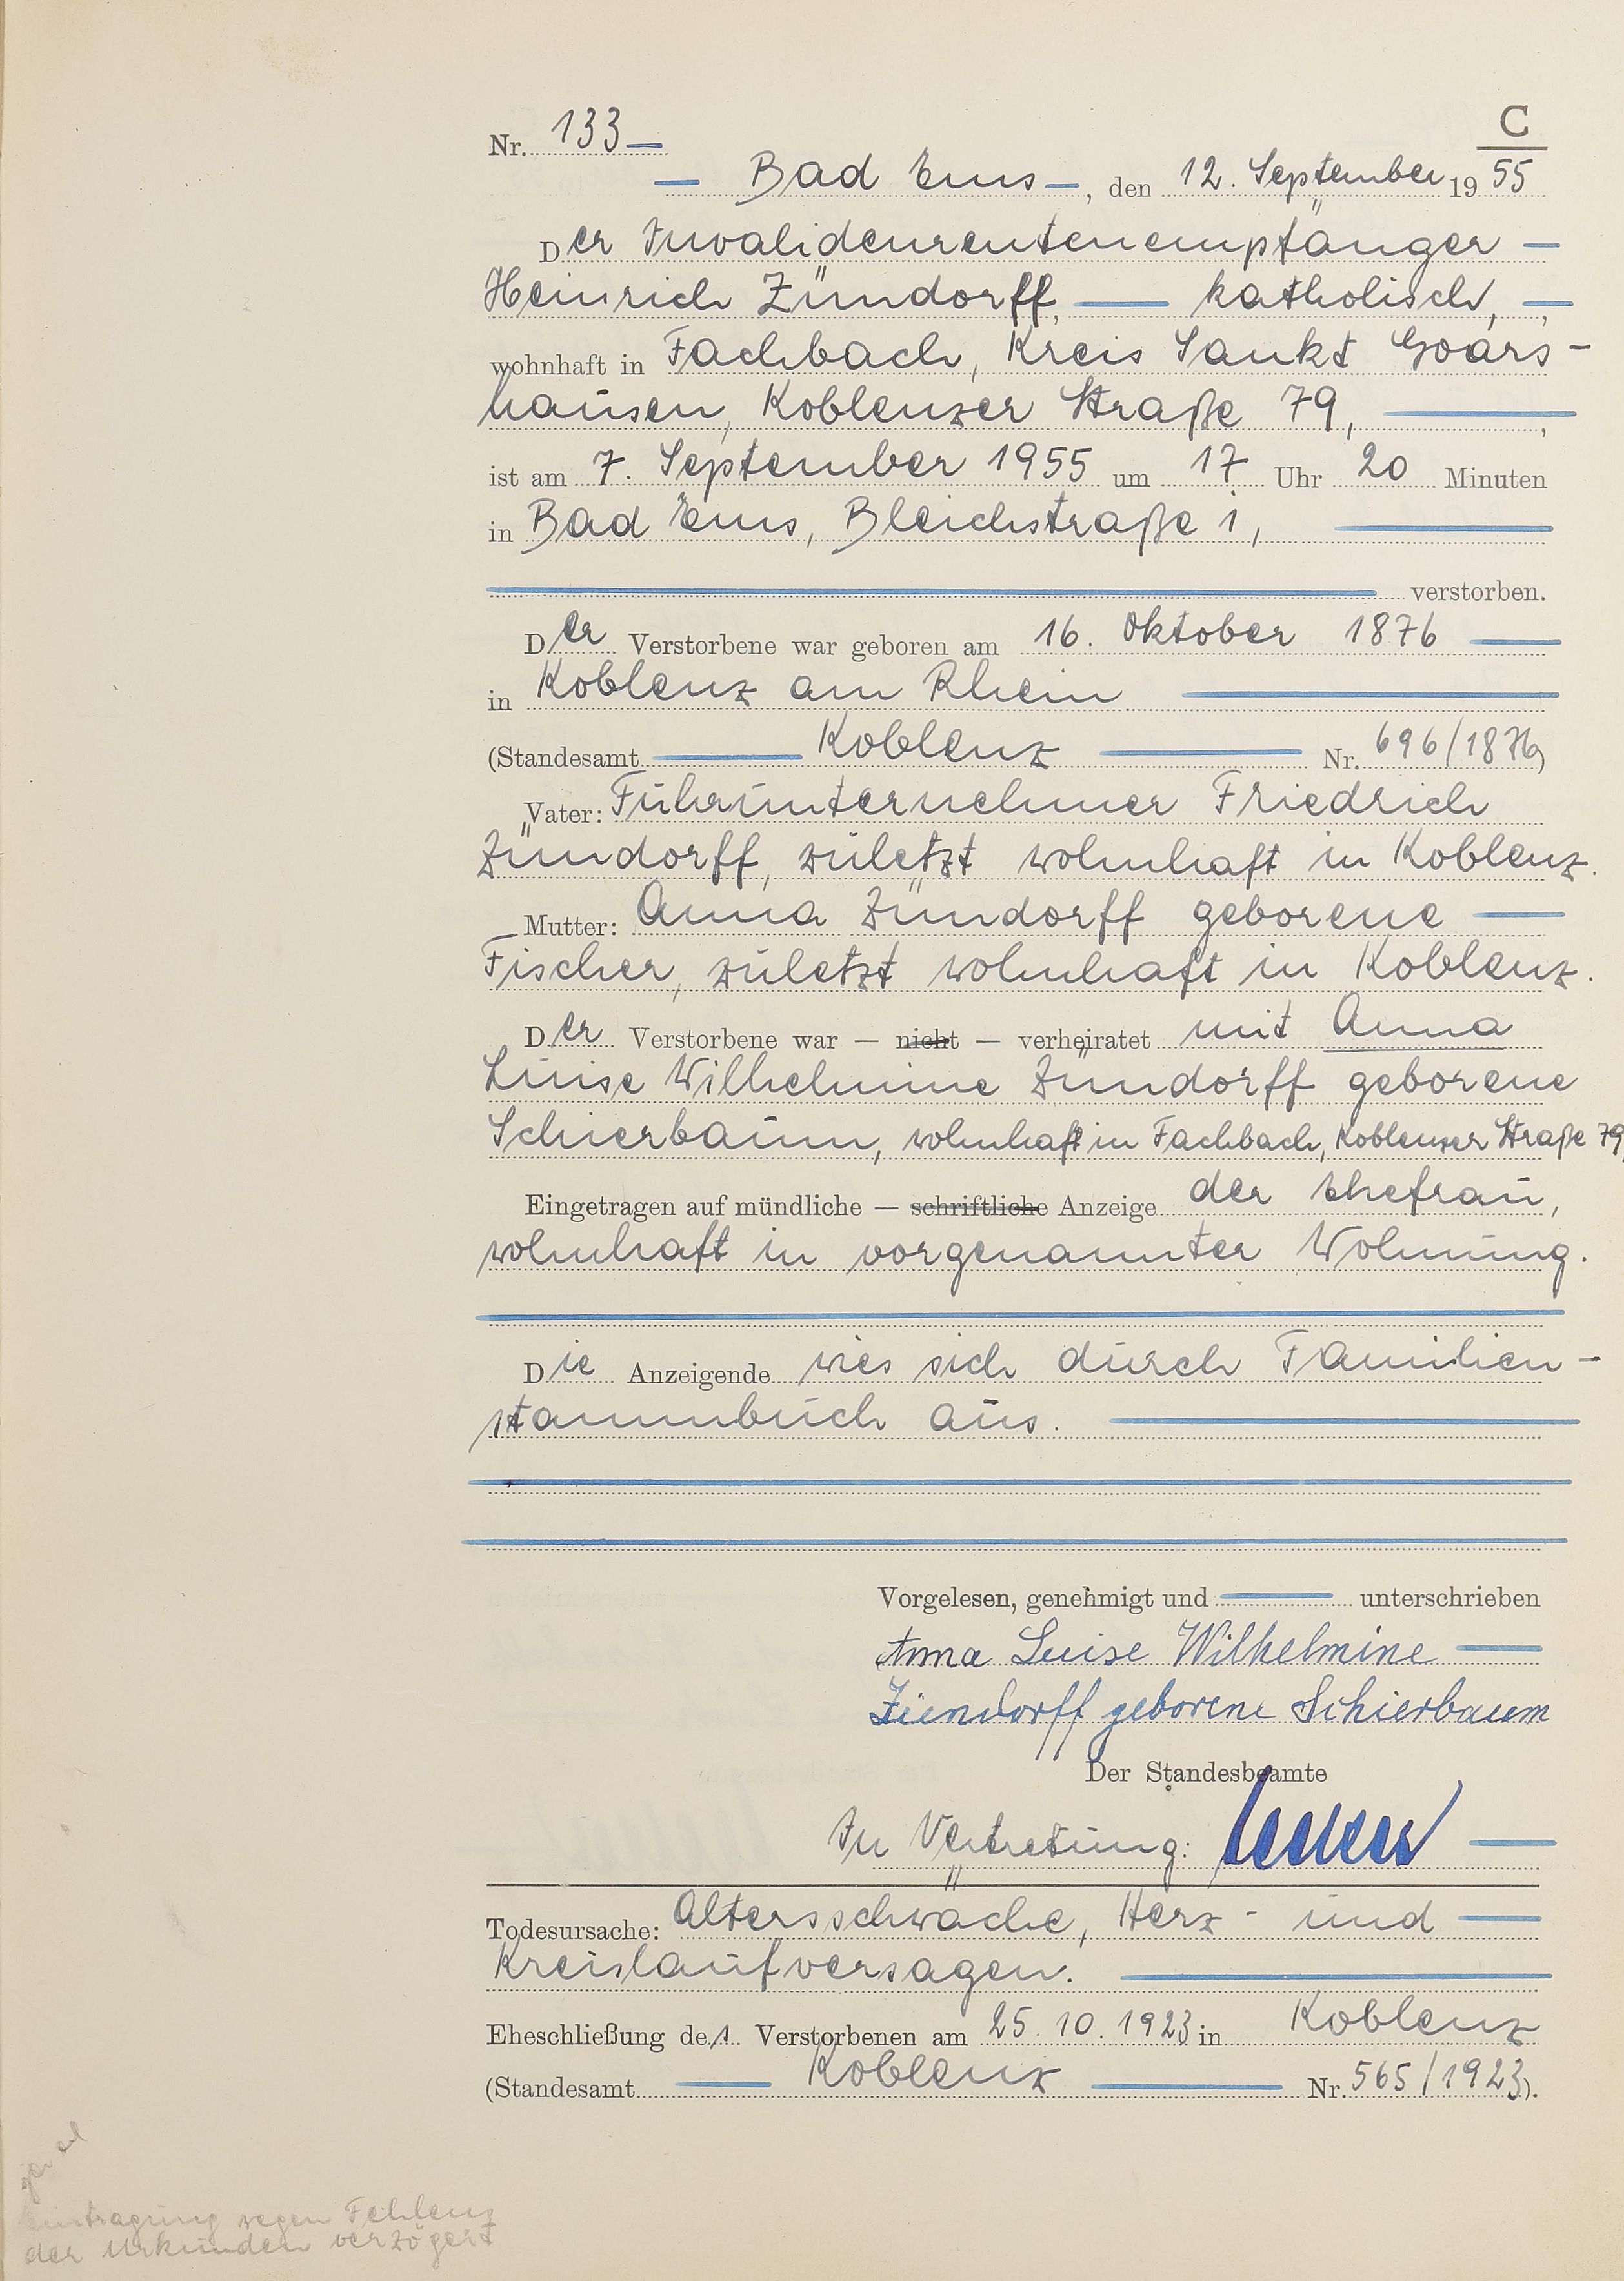 C
Nr. 133
Bad Ems, den 12. September 1955
Der Invalidenrentenempfänger
Heinrich Zündorff, katholisch,
wohnhaft in Fachbach, Kreis Sankt Goars-
hausen, Koblenzer Straße 79,
ist am 7. September 1955 um 17 Uhr 20 Minuten
in Bad Ems, Bleichstraße 1,
verstorben.
Der Verstorbene war geboren am 16. Oktober 1876
in Koblenz am Rhein
(Standesamt Koblenz Nr. 696/1876)
Vater: Fuhrunternehmer Friedrich
Zündorff, zuletzt wohnhaft in Koblenz.
Mutter: Anna Zündorff geborene
Fischer, zuletzt wohnhaft in Koblenz.
Der Verstorbene war — nicht — verheiratet mit Anna
Luise Wilhelmine Zündorff geborene
Schierbaum, wohnhaft in Fachbach, Koblenzer Straße 79,
Eingetragen auf mündliche — schriftliche Anzeige der Ehefrau,
wohnhaft in vorgenannter Wohnung.
Die Anzeigende wies sich durch Familien-
stammbuch aus.
Vorgelesen, genehmigt und unterschrieben
Anna Luise Wilhelmine
Zündorff geborene Schierbaum
Der Standesbeamte
In Vertretung:
Todesursache: Altersschwäche, Herz- und
Kreislaufversagen.
Eheschließung des Verstorbenen am 25.10.1923 in Koblenz
(Standesamt Koblenz Nr. 565/1923).
Eintragung wegen Fehlens
der Urkunden verzögert